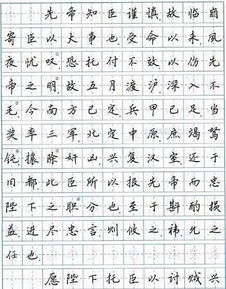 先帝知臣谨慎，故临崩
寄臣以大事也。受命以来，夙
夜忧叹，恐托付不效，以伤先
帝之明，故五月渡泸，深入不
毛。今南方已定，兵甲已足，当
奖率三军，北定中原，庶竭驽
钝，攘除奸凶，兴复汉室，还于
旧都。此臣所以报先帝而忠
陛下之职分也。至于斟酌损
益，进尽忠言，则攸之祎允之
任也。
愿陛下托臣以讨贼兴